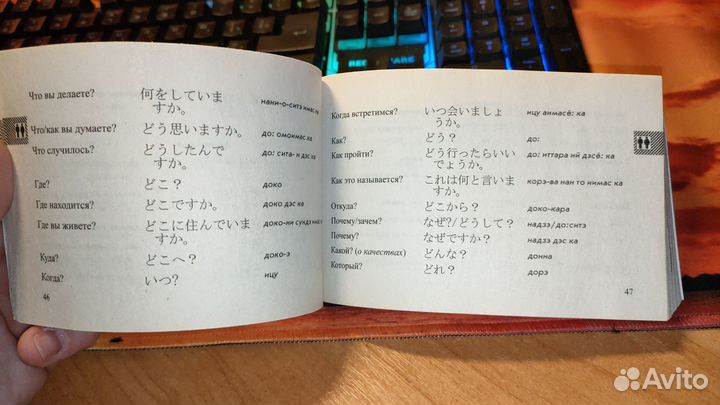 Что вы делаете? 何をしていま нани-о-ситэ имас ка
すか。
Что/как вы думаете? どう思いますか。 до: омоимас ка
Что случилось? どうしたんで до: сита-н дэс ка
すか。
Где? どこ？ доко
Где находится? どこですか。 доко дэс ка
Где вы живете? どこに住んでいま доко-ни сундэ имас
すか。
Куда? どこへ？ доко-э
Когда? いつ? ицу
46
Когда встретимся? いつ会いましょ ицу аимасё: ка
うか。
Как? どう？ до:
Как пройти? どう行ったらいい до: иттара ий дэсё: ка
でょうか。
Как это называется? これは何と言いま корэ-ва нан то иимас ка
すか。
Откуда? どこから？ доко-кара
Почему/зачем? なぜ?/どうして？ надзэ/до:ситэ
Почему? なぜですか？ надзэ дэс ка
Какой? (о качествах) どんな？ донна
Который? どれ？ дорэ
47
Avito